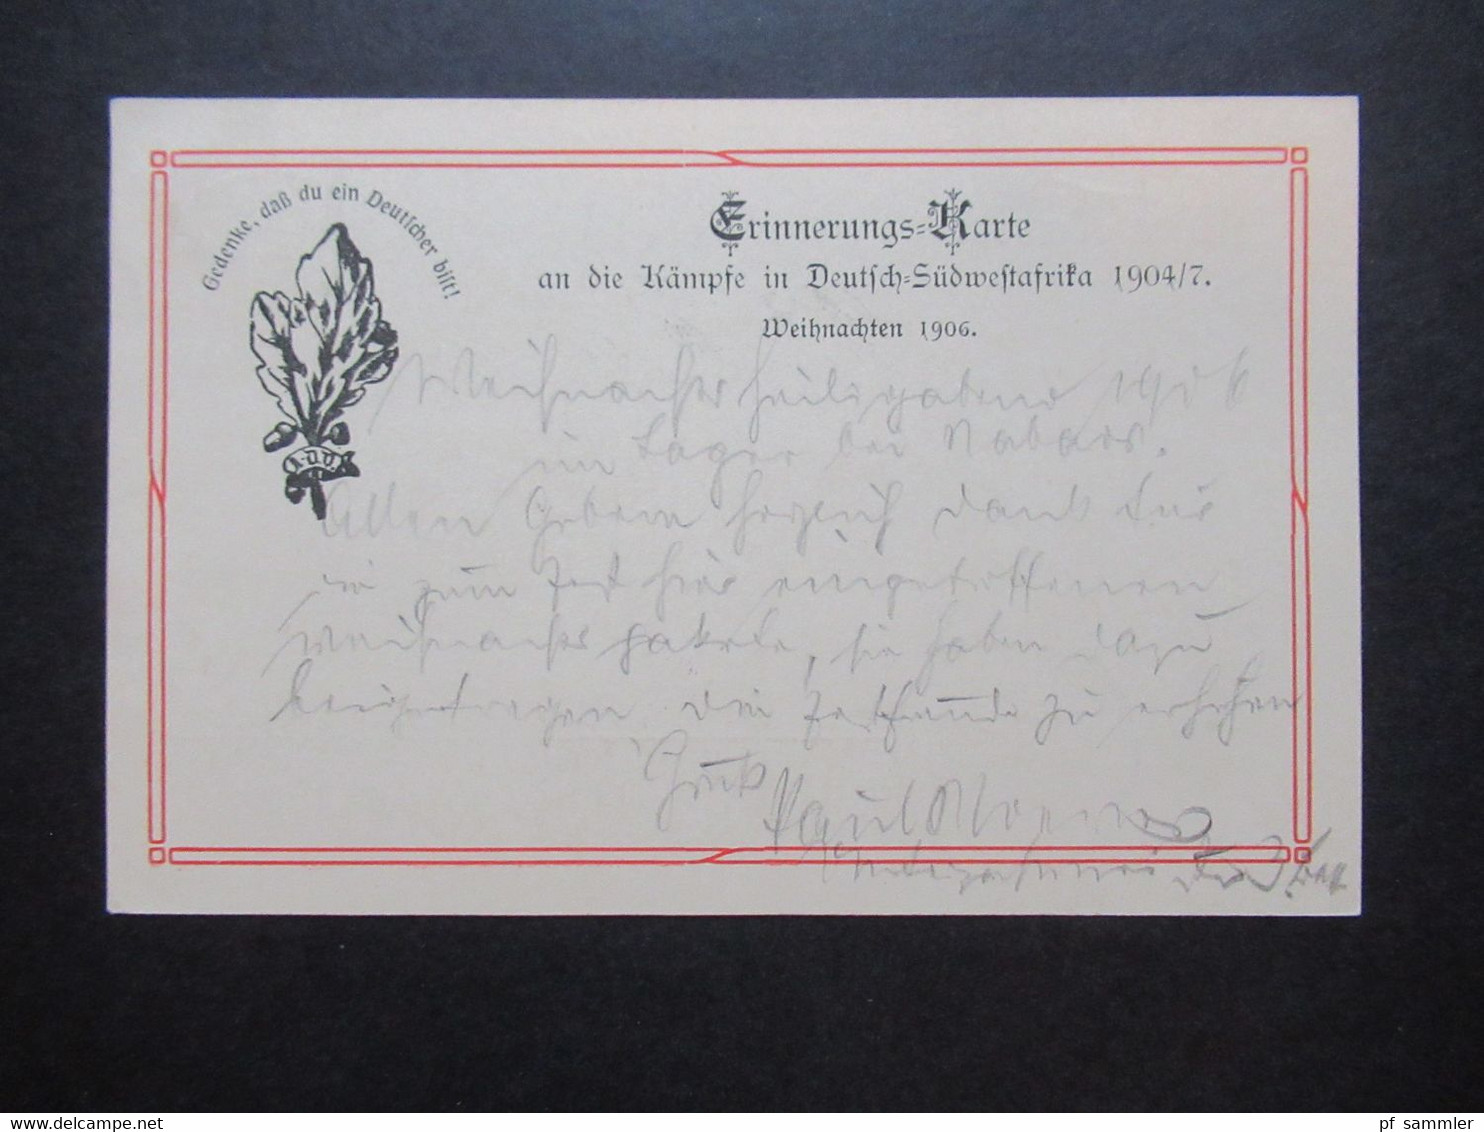 Gedenke, daß du ein Deutscher bist!
Erinnerungs-Karte
an die Kämpfe in Deutsch-Südwestafrika 1904/7.
Weihnachten 1906.
A.D.V.
Weihnachten heiligabend 1906
im Lager bei Nabaos.
Allen Gebern herzlich Dank für
die zum Fest hier eingetroffenen
Weihnachts pakete, sie haben dazu
beigetragen die Festfreude zu erhöhen
Gruß
Paul
pf_sammler